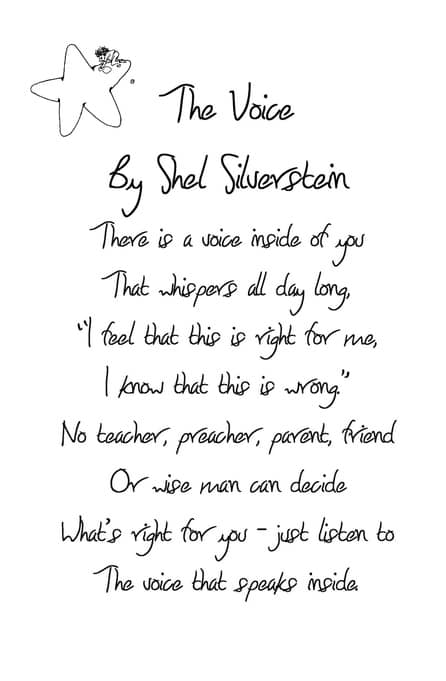 The Voice
By Shel Silverstein
There is a voice inside of you
That whispers all day long,
"I feel that this is right for me,
I know that this is wrong."
No teacher, preacher, parent, friend
Or wise man can decide
What's right for you - just listen to
The voice that speaks inside.